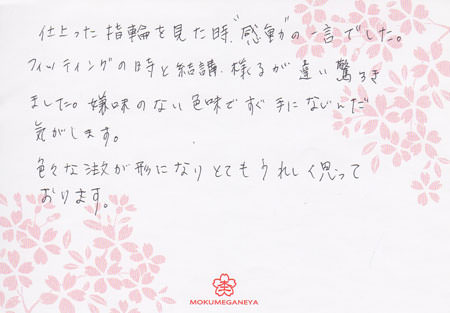 仕上った指輪を見た時、"感動"の一言でした。
フィッティングの時と結講、様子が違い驚ろき
ました。嫌味のない色味ですぐ手になじんだ
気がします。
色々な注文が形になりとてもうれしく思って
おります。
MOKUMEGANEYA